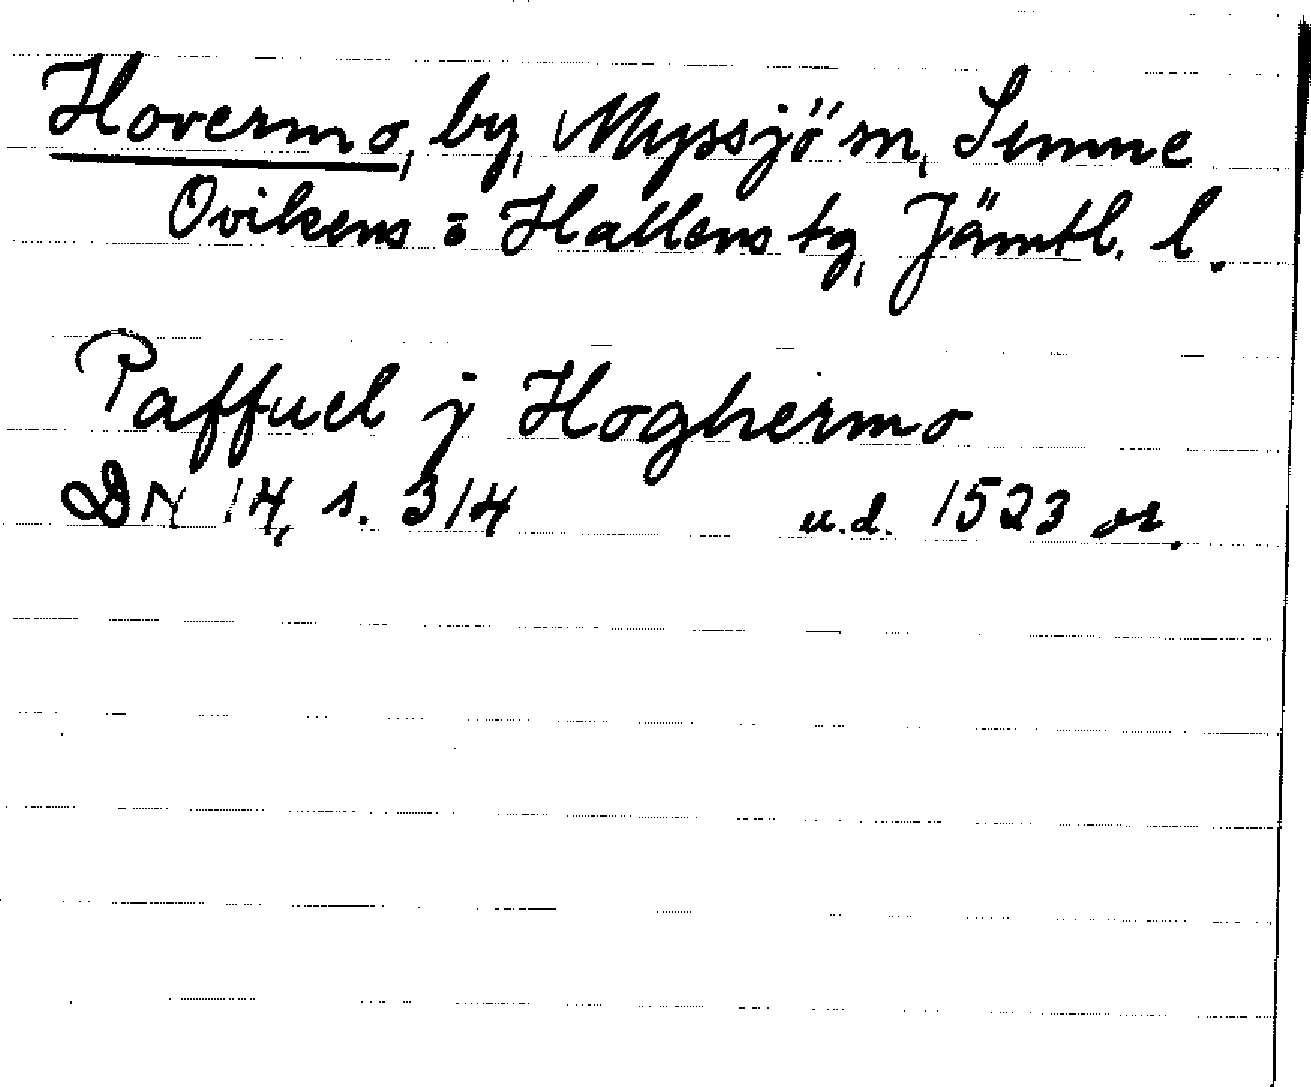 Hovermo, by, Myssjö sn, Sunne
Ovikens o Hallens tg, Jämtl. l.
Paffuel j Hoghermo
DN 14, s. 314 u.d. 1523 or.